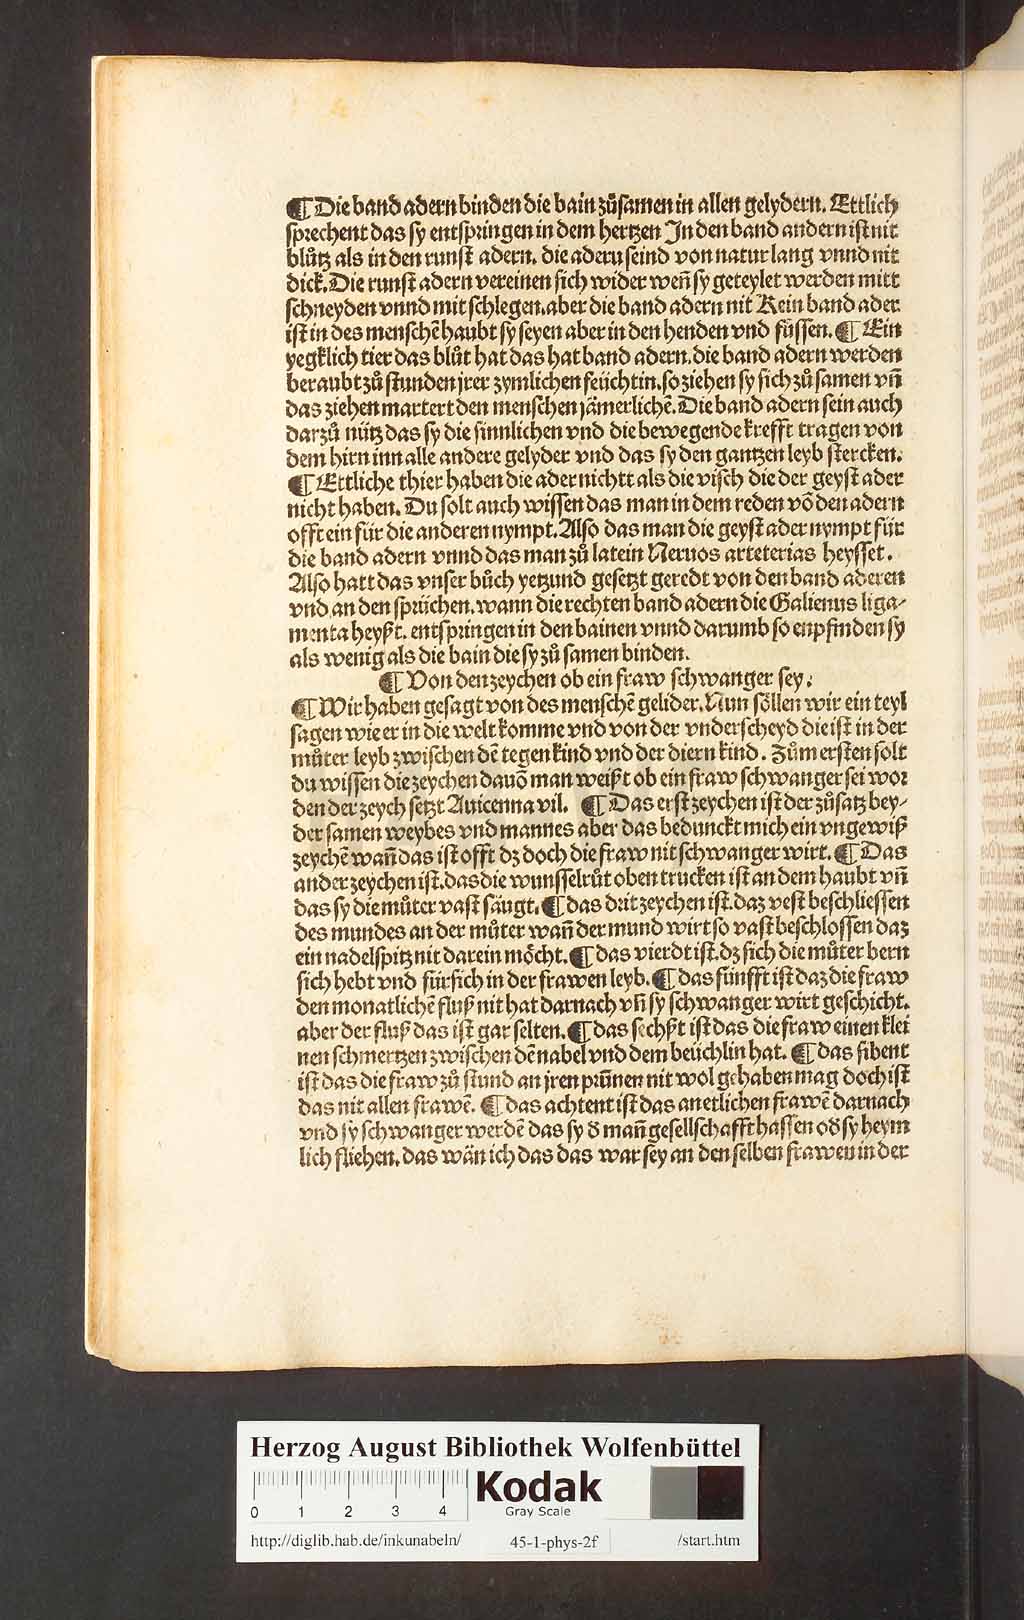 ¶ Die band adern binden die bain zůsamen in allen gelydern. Ettlich
sprechent das sy entspringen in dem hertzen Jn den band andern ist nit
blůtz als in den runst adern. die aderu seind von natur lang vnnd nit
dick. Die runst adern vereinen sich wider weñ sy geteylet werden mitt
schneyden vnnd mit schlegen. aber die band adern nit Kein band ader
ist in des menschẽ haubt sy seyen aber in den henden vnd füssen. ¶ Ein
yegklich tier das blůt hat das hat band adern. die band adern werden
beraubt zů stunden jrer zymlichen feüchtin. so ziehen sy sich zů samen vñ
das ziehen martert den menschen jämerlichẽ. Die band adern sein auch
darzů nütz das sy die sinnlichen vnd die bewegende krefft tragen von
dem hirn inn alle andere gelyder vnd das sy den gantzen leyb stercken.
¶ Ettliche thier haben die ader nichtt als die visch die der geyst ader
nicht haben. Du solt auch wissen das man in dem reden võ den adern
offt ein für die anderen nympt. Also das man die geyst ader nympt für
die band adern vnnd das man zů latein Neruos arteterias heysset.
Also hatt das vnser bůch yetzund gesetzt geredt von den band aderen
vnd an den sprüchen. wann die rechten band adern die Galienus liga-
menta heyßt. entspringen in den bainen vnnd darumb so enpfinden sy
als wenig als die bain die sy zů samen binden.
¶ Von den zeychen ob ein fraw schwanger sey.
¶ Wir haben gesagt von des menschẽ gelider. Nun söllen wir ein teyl
sagen wie er in die welt komme vnd von der vnderscheyd die ist in der
můter leyb zwischen dẽ tegen kind vnd der diern kind. Zům ersten solt
du wissen die zeychen dauõ man weißt ob ein fraw schwanger sei wor
den der zeych setzt Auicenna vil. ¶ Das erst zeychen ist der zůsatz bey-
der samen weybes vnd mannes aber das bedunckt mich ein vngewiß
zeychẽ wañ das ist offt dz doch die fraw nit schwanger wirt. ¶ Das
ander zeychen ist. das die wunsselrůt oben trucken ist an dem haubt vñ
das sy die můter vast säugt. ¶ das drit zeychen ist. daz vest beschliessen
des mundes an der můter wañ der mund wirt so vast beschlossen daz
ein nadelspitz nit darein möcht. ¶ das vierdt ist. dz sich die můter bern
sich hebt vnd fürsich in der frawen leyb. ¶ das fünfft ist daz die fraw
den monatlichẽ fluß nit hat darnach vñ sy schwanger wirt geschicht.
aber der fluß das ist gar selten. ¶ das sechßt ist das die fraw einen klei
nen schmertzen zwischen dẽ nabel vnd dem beüchlin hat. ¶ das sibent
ist das die fraw zů stund an jren prũnen nit wol gehaben mag doch ist
das nit allen frawẽ. ¶ das achtent ist das an etlichen frawẽ darnach
vnd sy schwanger werdẽ das sy d̓ mañ gesellschafft hassen od̓ sy heym
lich fliehen. das wän ich das das war sey an den selben frawen in der
Herzog August Bibliothek Wolfenbüttel
0 1 2 3 4
Kodak
Gray Scale
http://diglib.hab.de/inkunabeln/ 45-1-phys-2f /start.htm